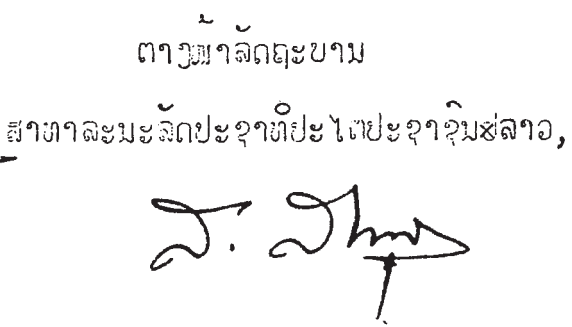 ຕາງໜ້າລັດຖະບານ
ສາທາລະນະລັດປະຊາທິປະໄຕປະຊາຊົນລາວ,